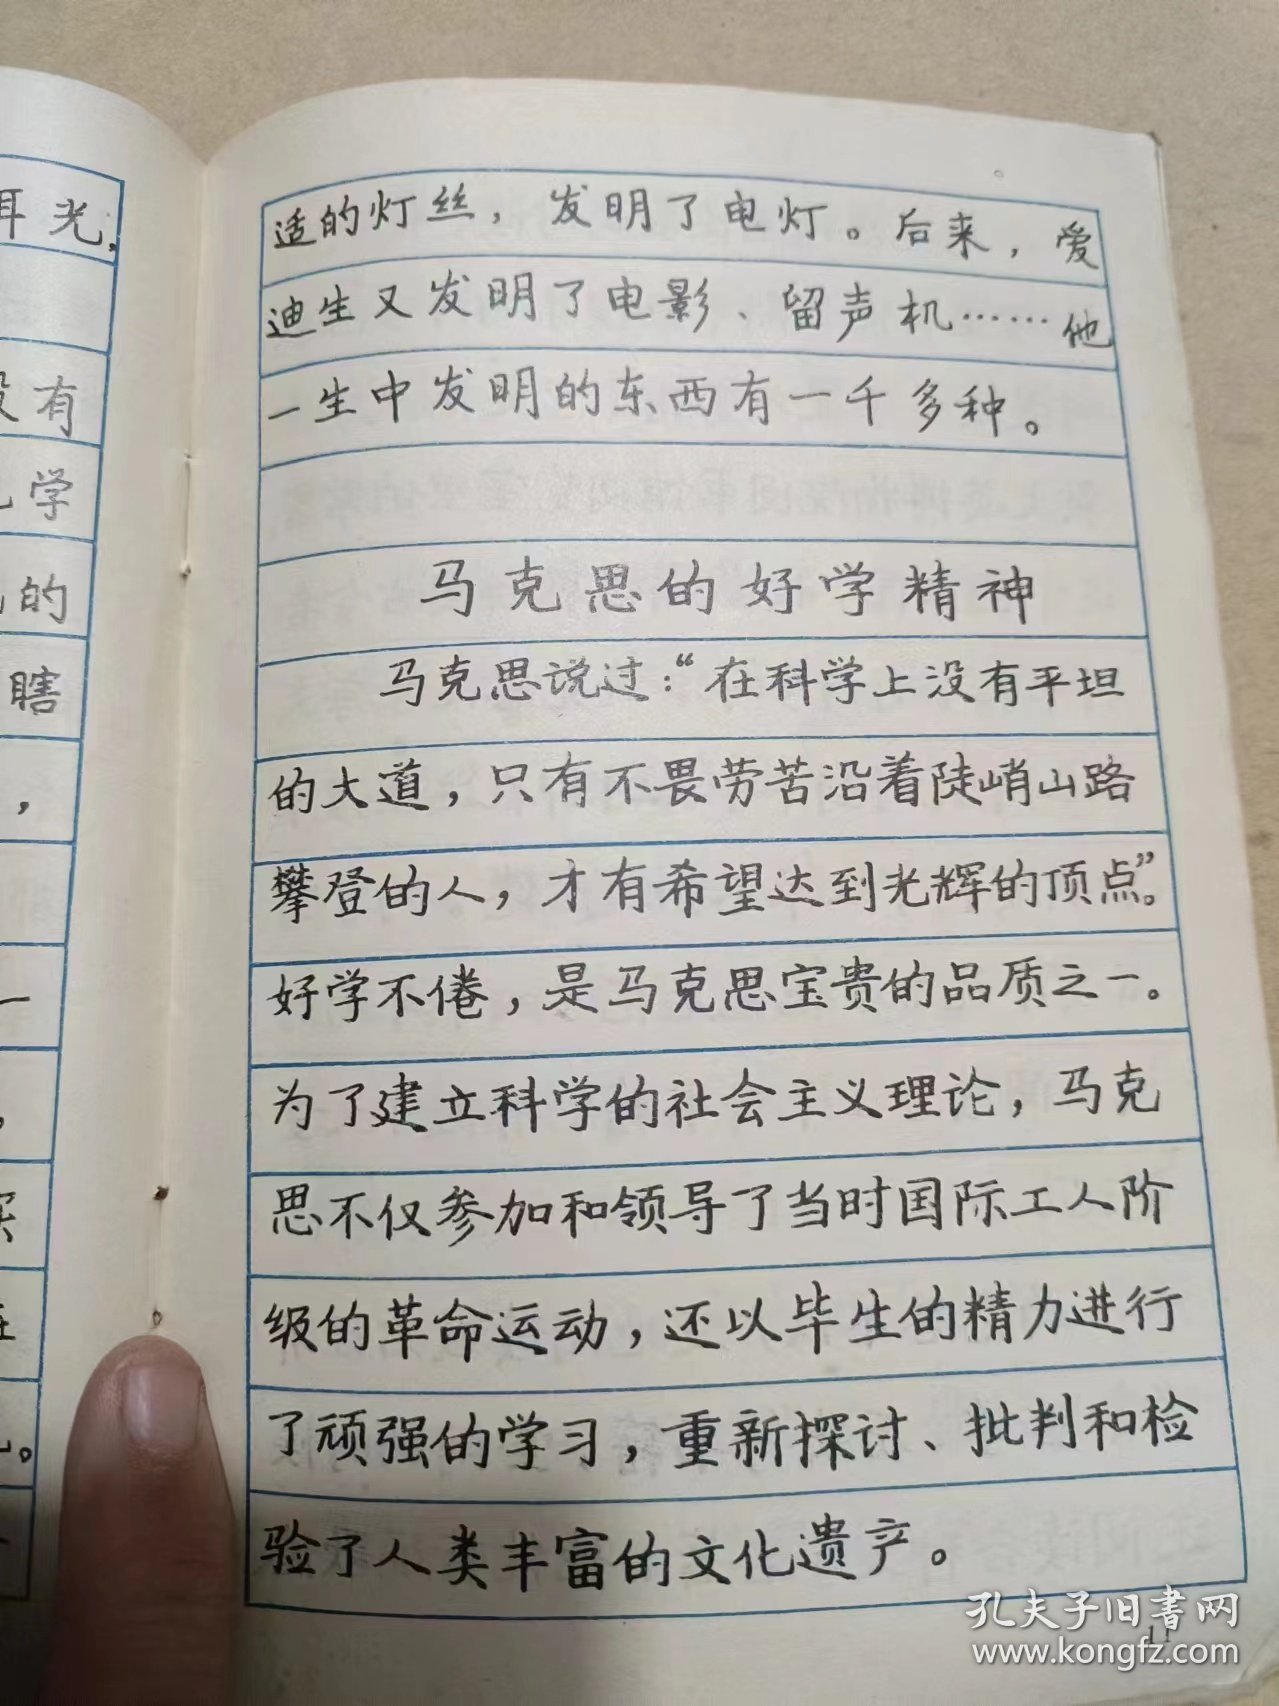 耳光,
有
学
的
瞎
，
一
，
适的灯丝，发明了电灯。后来，爱
迪生又发明了电影、留声机……他
一生中发明的东西有一千多种。
马克思的好学精神
马克思说过：“在科学上没有平坦
的大道，只有不畏劳苦沿着陡峭山路
攀登的人，才有希望达到光辉的顶点”。
好学不倦，是马克思宝贵的品质之一。
为了建立科学的社会主义理论，马克
思不仅参加和领导了当时国际工人阶
级的革命运动，还以毕生的精力进行
了顽强的学习，重新探讨、批判和检
验了人类丰富的文化遗产。
11
孔夫子旧书网
www.kongfz.com